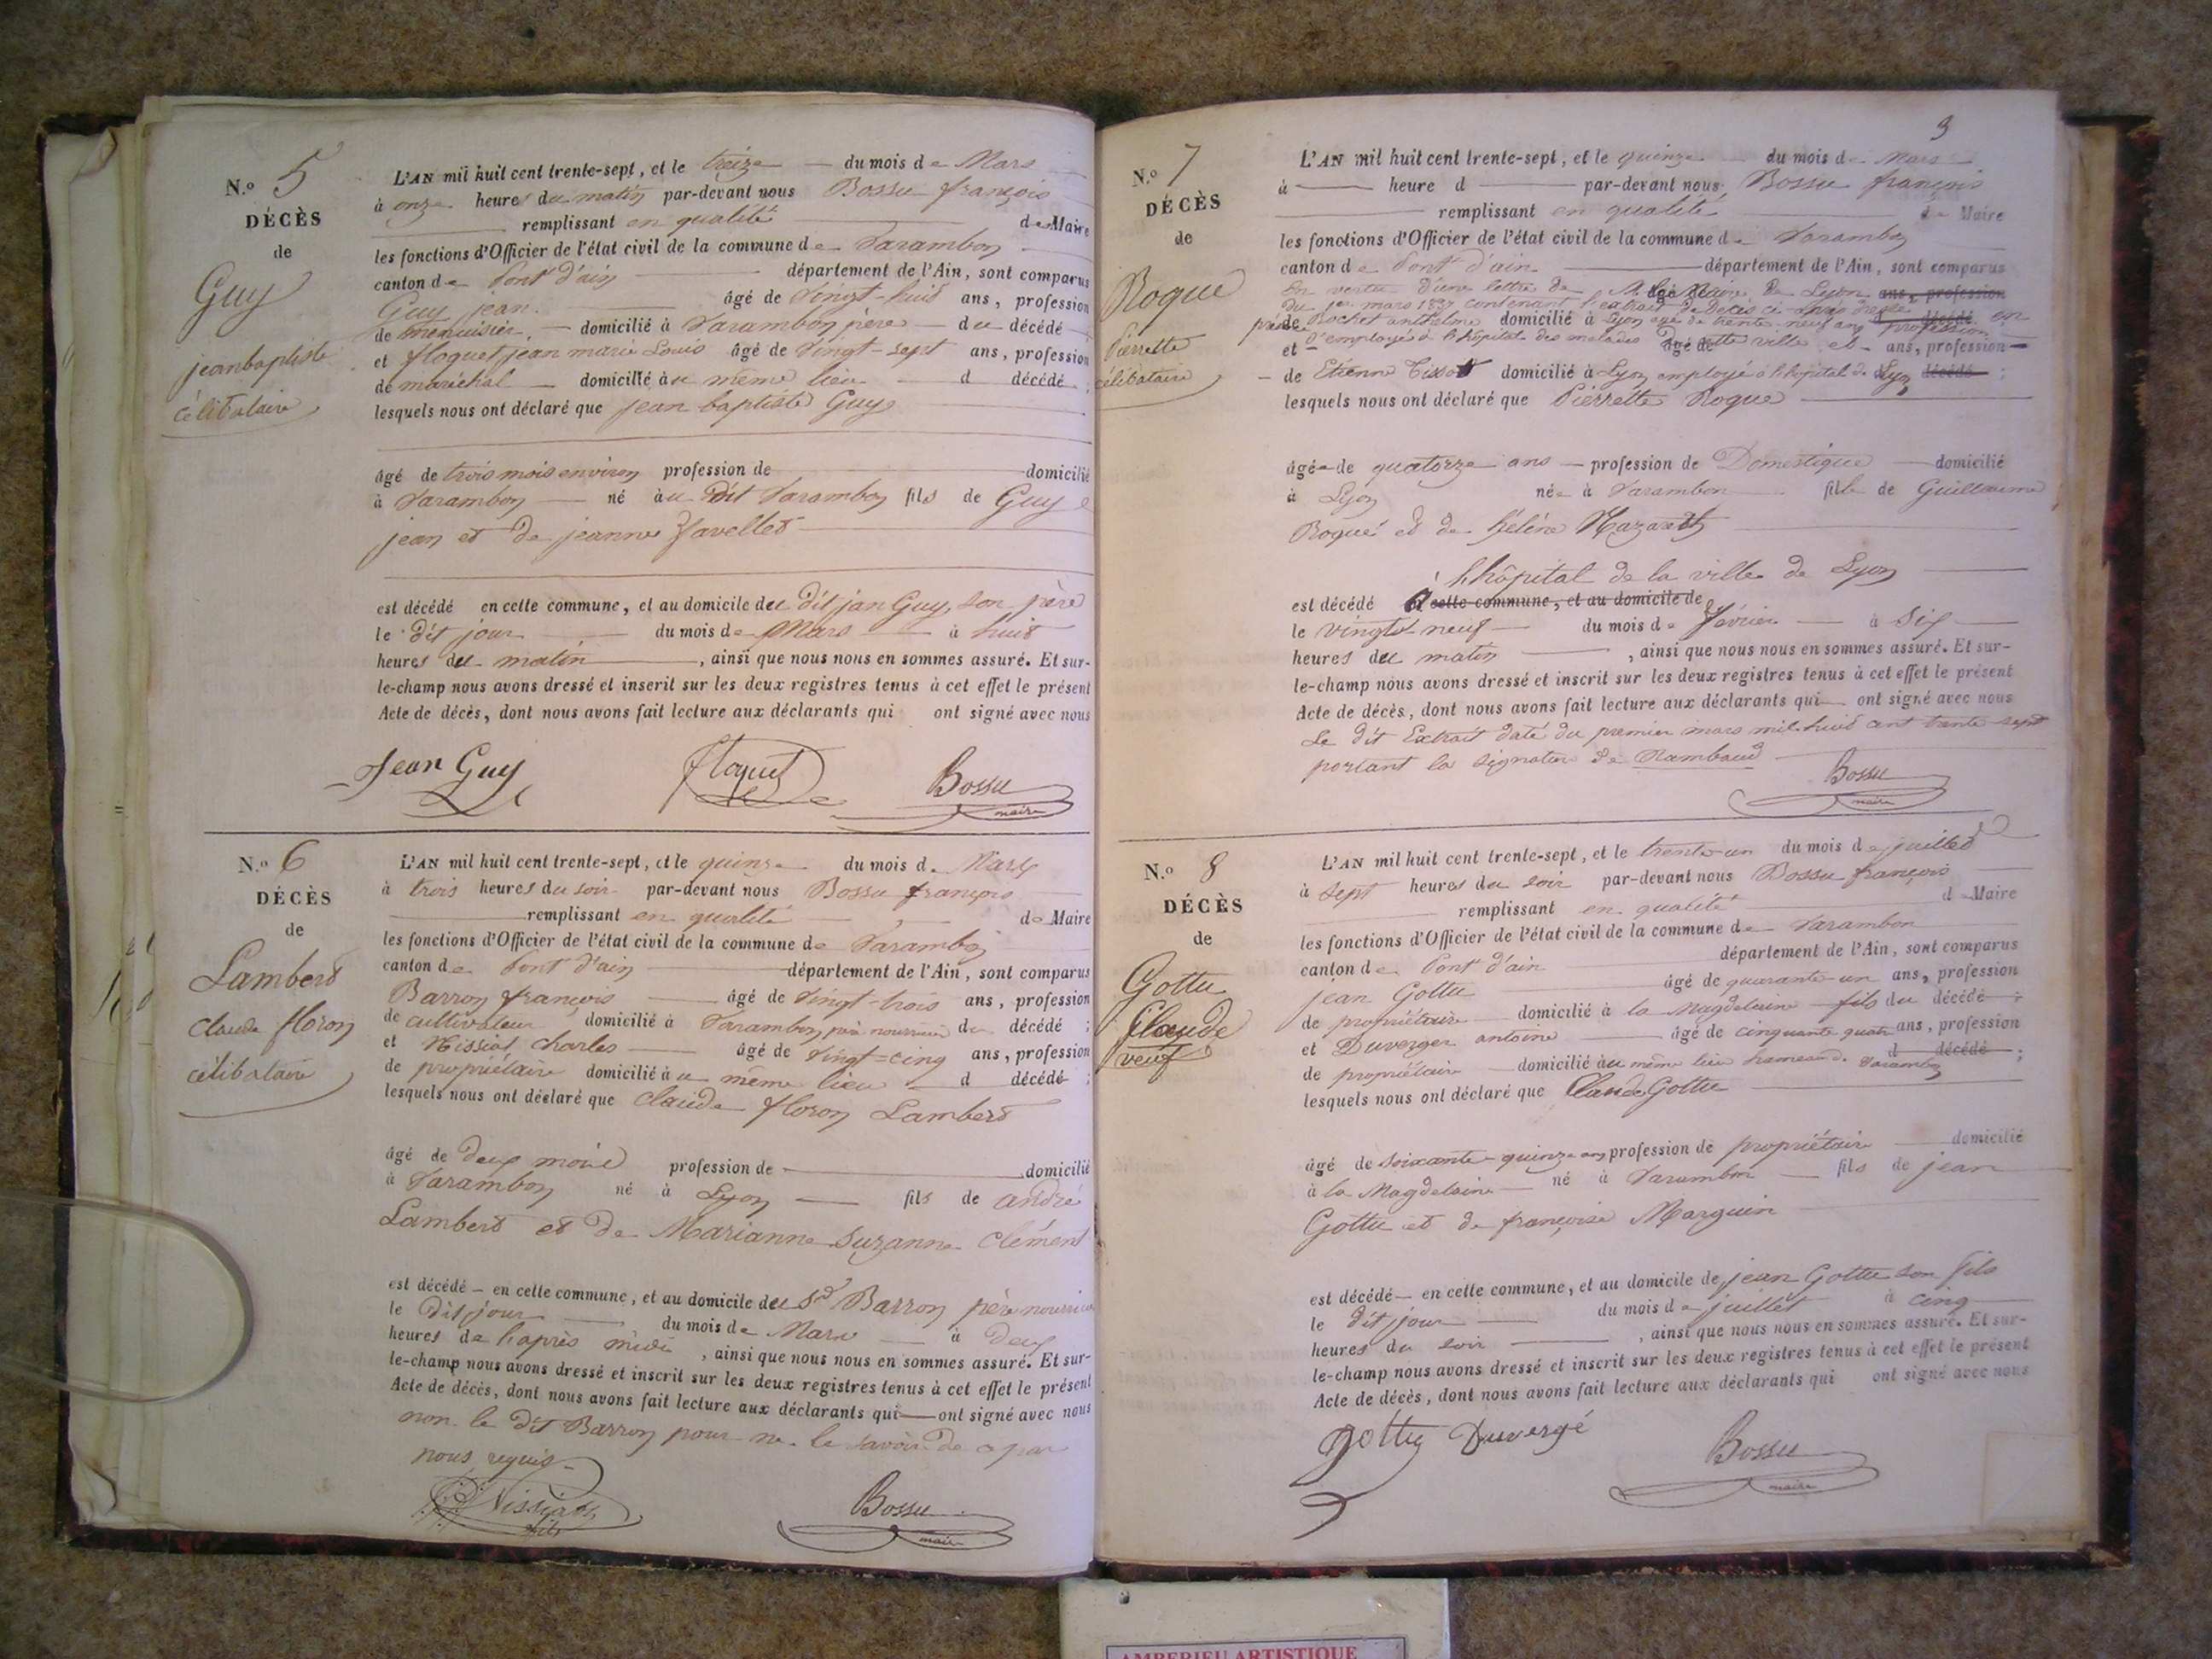 N.o 5
DÉCÈS
de
Guy
jeanbaptiste
célibataire
L'AN mil huit cent trente-sept, et le treize du mois de Mars
à onze heures du matin par-devant nous Bossu françois
remplissant en qualité de Maire
les fonctions d'Officier de l'état civil de la commune de Varambon
canton de Pont d'ain département de l'Ain, sont comparus
Guy jean âgé de vingt-huit ans, profession
de menuisier domicilié à Varambon père du décédé
et floquet jean marie Louis âgé de vingt-sept ans, profession
de maréchal domicilié au même lieu d décédé ;
lesquels nous ont déclaré que jean baptiste Guy
âgé de trois mois environ profession de domicilié
à Varambon né au dit Varambon fils de Guy
jean et de jeanne Javellet
est décédé en cette commune, et au domicile du dit jan Guy, son père
le dit jour du mois de Mars à huit
heures du matin, ainsi que nous nous en sommes assuré. Et sur-
le-champ nous avons dressé et inscrit sur les deux registres tenus à cet effet le présent
Acte de décès, dont nous avons fait lecture aux déclarants qui ont signé avec nous
Jean Guy floquet Bossu
maire
N.o 6
DÉCÈS
de
Lambert
Claude floron
célibataire
L'AN mil huit cent trente-sept, et le quinze du mois de Mars
à trois heures du soir par-devant nous Bossu françois
remplissant en qualité de Maire
les fonctions d'Officier de l'état civil de la commune de Varambon
canton de Pont d'ain département de l'Ain, sont comparus
Barron françois âgé de vingt-trois ans, profession
de cultivateur domicilié à Varambon père nourricier du décédé ;
et Nissiat Charles âgé de vingt-cinq ans, profession
de propriétaire domicilié au même lieu d décédé ;
lesquels nous ont déclaré que Claude floron Lambert
âgé de deux mois profession de domicilié
à Varambon né à Lyon fils de andré
Lambert et de Marianne Suzanne Clément
est décédé en cette commune, et au domicile du Sd Barron père nourricier
le dit jour du mois de Mars à deux
heures de l'après midi, ainsi que nous nous en sommes assuré. Et sur-
le-champ nous avons dressé et inscrit sur les deux registres tenus à cet effet le présent
Acte de décès, dont nous avons fait lecture aux déclarants qui ont signé avec nous
non le dit Barron pour ne le savoir de ce par
nous requis
Nissiat fils Bossu
maire
3
N.o 7
DÉCÈS
de
Roque
Pierrette
célibataire
L'AN mil huit cent trente-sept, et le quinze du mois de Mars
à heure d par-devant nous Bossu françois
remplissant en qualité de Maire
les fonctions d'Officier de l'état civil de la commune de Varambon
canton de Pont d'ain département de l'Ain, sont comparus
En vertu d'une lettre de M. le Maire de Lyon âgé de ans, profession
du 1er mars 1837 contenant l'extrait de décès ci après dressé
de Rochet anthelme domicilié à Lyon agé de trente neuf ans profession
et d'employé à l'hôpital des malades âgé de cette ville et ans, profession
de Etienne Tissot domicilié à Lyon employé à l'hôpital de Lyon décédé ;
lesquels nous ont déclaré que Pierrette Roque
âgée de quatorze ans profession de Domestique domicilié
à Lyon née à Varambon fille de Guillaume
Roque et de hélène Nazareth
à l'hôpital de la ville de Lyon
est décédé cette commune, et au domicile de
le vingt neuf du mois de février à six
heures du matin, ainsi que nous nous en sommes assuré. Et sur-
le-champ nous avons dressé et inscrit sur les deux registres tenus à cet effet le présent
Acte de décès, dont nous avons fait lecture aux déclarants qui ont signé avec nous
Le dit Extrait daté du premier mars mil huit cent trente sept
portant la signature de Rambaud
Bossu
maire
N.o 8
DÉCÈS
de
Gottu
Claude
veuf
L'AN mil huit cent trente-sept, et le trente-un du mois de juillet
à sept heures du soir par-devant nous Bossu françois
remplissant en qualité de Maire
les fonctions d'Officier de l'état civil de la commune de Varambon
canton de Pont d'ain département de l'Ain, sont comparus
jean Gottu âgé de quarante-un ans, profession
de propriétaire domicilié à la Magdelaine fils du décédé ;
et Duverger antoine âgé de cinquante quatre ans, profession
de propriétaire domicilié au même lieu hameau de Varambon d décédé ;
lesquels nous ont déclaré que Claude Gottu
âgé de soixante-quinze ans profession de propriétaire domicilié
à la Magdelaine né à Varambon fils de jean
Gottu et de françoise Marguin
est décédé en cette commune, et au domicile de jean Gottu son fils
le dit jour du mois de juillet à cinq
heures du soir, ainsi que nous nous en sommes assuré. Et sur-
le-champ nous avons dressé et inscrit sur les deux registres tenus à cet effet le présent
Acte de décès, dont nous avons fait lecture aux déclarants qui ont signé avec nous
gottu Duvergé Bossu
maire
AMBERIEU ARTISTIQUE